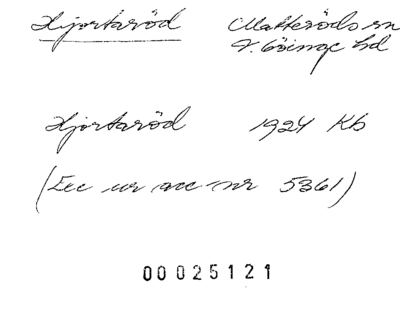 Hjortaröd Matteröds sn
V. Göinge hd
Hjortaröd 1924 Kb
(Exc ur acc nr 5361)
00025121